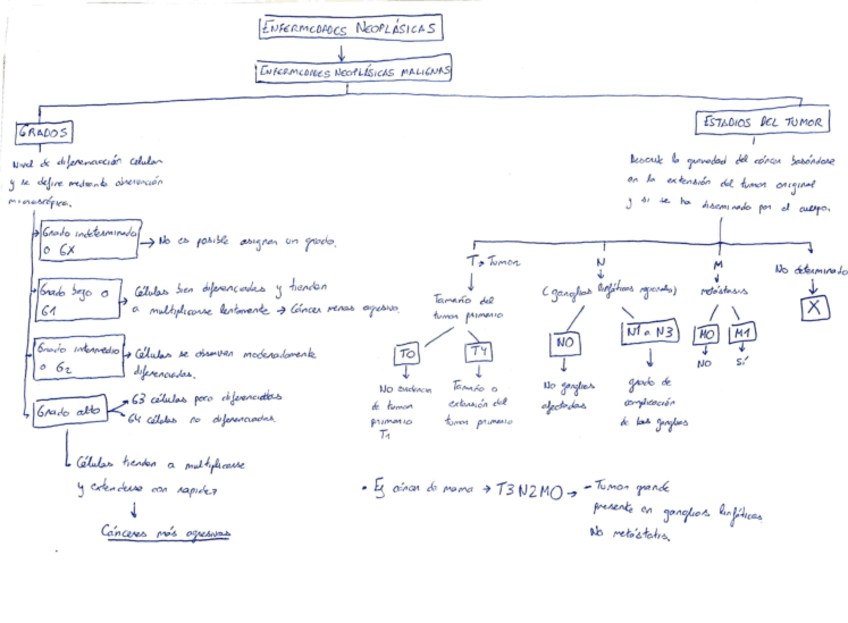 ENFERMEDADES NEOPLÁSICAS
ENFERMEDADES NEOPLÁSICAS MALIGNAS
GRADOS
Nivel de diferenciación celular
y se define mediante observación
microscópica.
Grado indeterminado
o GX
No es posible asignar un grado.
Grado bajo o
G1
Células bien diferenciadas y tienden
a multiplicarse lentamente → Cáncer menos agresivo.
Grado intermedio
o G2
Células se observan moderadamente
diferenciadas.
Grado alto
G3 células poco diferenciadas
G4 células no diferenciadas.
Células tienden a multiplicarse
y extenderse con rapidez
Cánceres más agresivos
ESTADIOS DEL TUMOR
Describe la gravedad del cáncer basándose
en la extensión del tumor original
y si se ha diseminado por el cuerpo.
T → Tumor
Tamaño del
tumor primario
T0
No evidencia
de tumor
primario
T1
T4
Tamaño o
extensión del
tumor primario
N
(ganglios linfáticos regionales)
N0
No ganglios
afectados
N1 a N3
grado de
complicación
de los ganglios
M
metástasis
M0
NO
M1
SÍ
No determinado
X
• Ej cáncer de mama → T3N2M0 → - Tumor grande
presente en ganglios linfáticos
No metástasis.